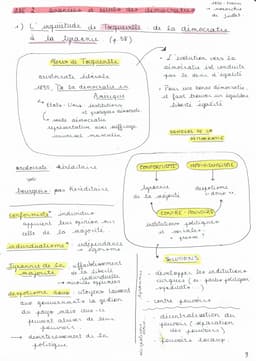 1) L'inquiétude de Tocqueville : de la démocratie
à la tyrannie (p.38)
Alexis de Tocqueville
aristocrate libéral
1835, De la démocratie en
Amérique
États-Unis : institutions
et pratiques démocrat.
seule démocratie
représentative avec suffrage
universel masculin
• L'évolution vers la
démocratie est conduite
par le désir d'égalité
• Pour une bonne démocratie
il faut trouver un équilibre
liberté égalité
DANGERS DE LA
DÉMOCRATIE
aristocrate héréditaire
bourgeois pas héréditaire
CONFORMISME
INDIVIDUALISME
tyrannie
de la majorité
despotisme
doux
CONTRE-POUVOIRS
institutions politiques
et sociales
presse
conformisme individus
appuient leur opinion sur
celle de la majorité
individualisme indépendance
égoïsme
tyrannie de la
majorité
affaiblissement
de la liberté
individuelle
despotisme doux citoyens laissent
aux gouvernants la gestion
du pays mais ceux-ci
peuvent abuser de leur
pouvoir
désintéressement de la
politique
SOLUTIONS
développer les institutions
contre pouvoirs
décentralisation du
pouvoir (séparation
des pouvoirs)
pouvoirs locaux
9